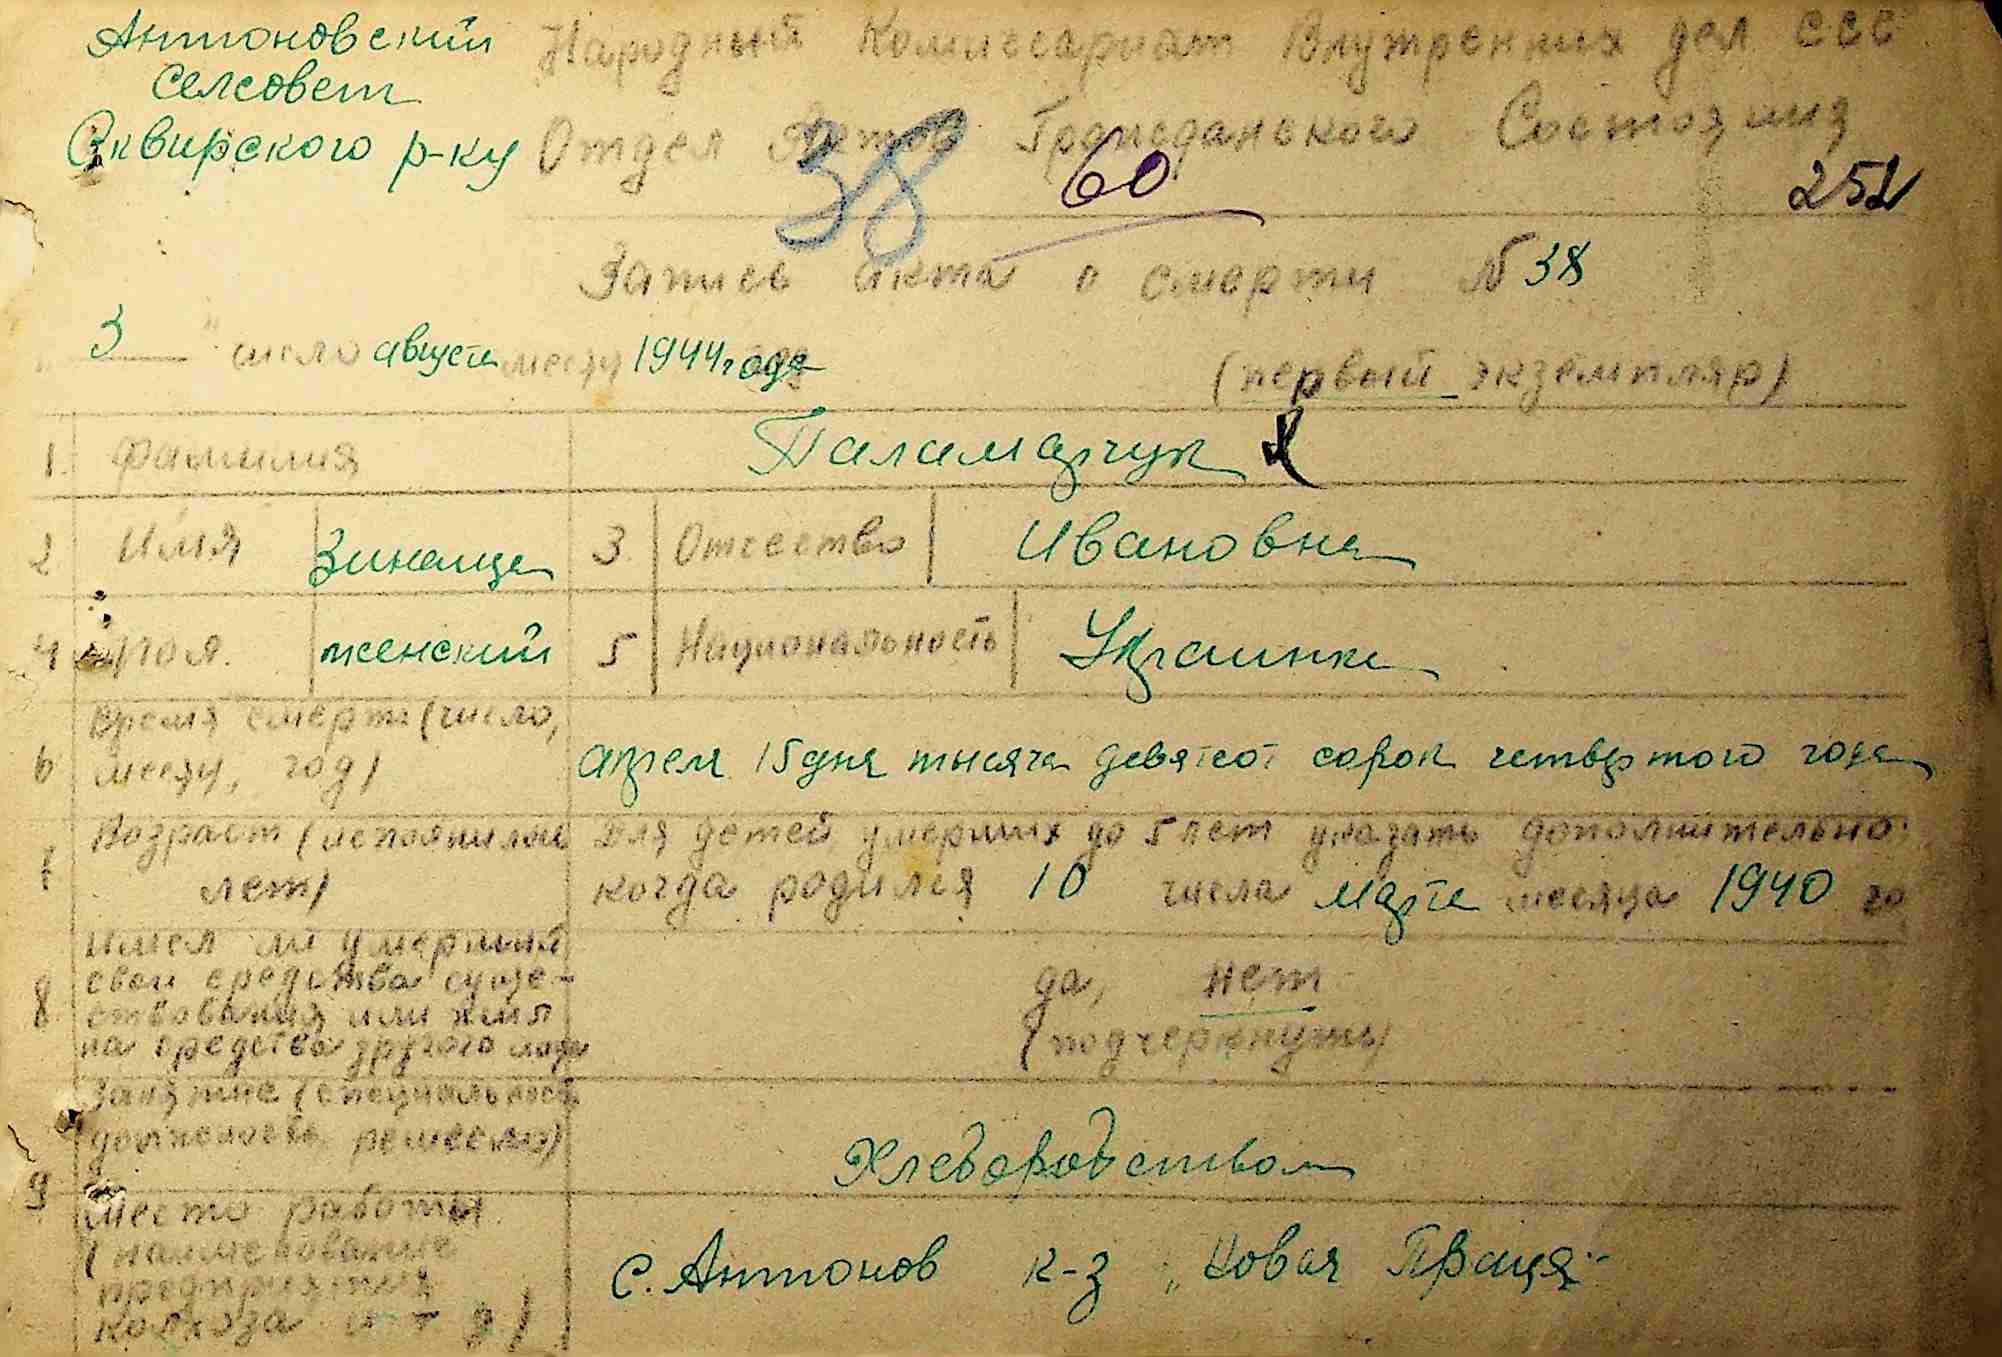 Антоновский
селсовет
Сквирского р-ку
Народный Комиссариат Внутренних дел ССС
Отдел Актов Гражданского Состояния
38
60
252
Запись акта о смерти N 38
" 3 " число августа месяц 1944 года
(первый экземпляр)
1. Фамилия Паламарчук
2 Имя Зинаида 3. Отчество Ивановна
4 пол. женский 5 Национальность Украинка
6 Время смерти (число, месяц, год)
апреля 15 дня тысяча девятсот сорок четвертого года
7 Возраст (исполнилось лет)
Для детей умерших до 5 лет указать дополнительно
когда родился 10 числа марта месяца 1940 го
8 Имел ли умерший
свои средства суще-
ствования или жил
на средства другого лица
да, нет
(подчеркнуть)
9 Занятие (специальность
должность, ремесло)
Хлеборобством
Место работы
(наименование
предприятия
колхоза и т д)
с. Антонов к-з "Новая Праця"